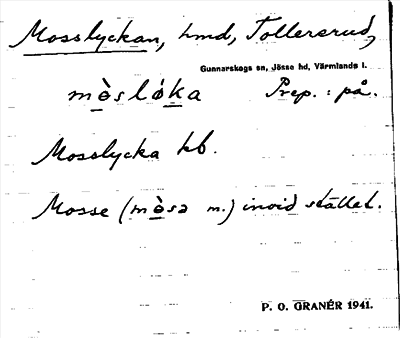 Mosslyckan, hmd, Tollersrud,
Gunnarskogs sn, Jösse hd, Värmlands l.
mò̱slø̀ḵa Prep.: på.
Mosslycka hb.
Mosse (mò̱sə m.) invid stället.
P. O. GRANÉR 1941.